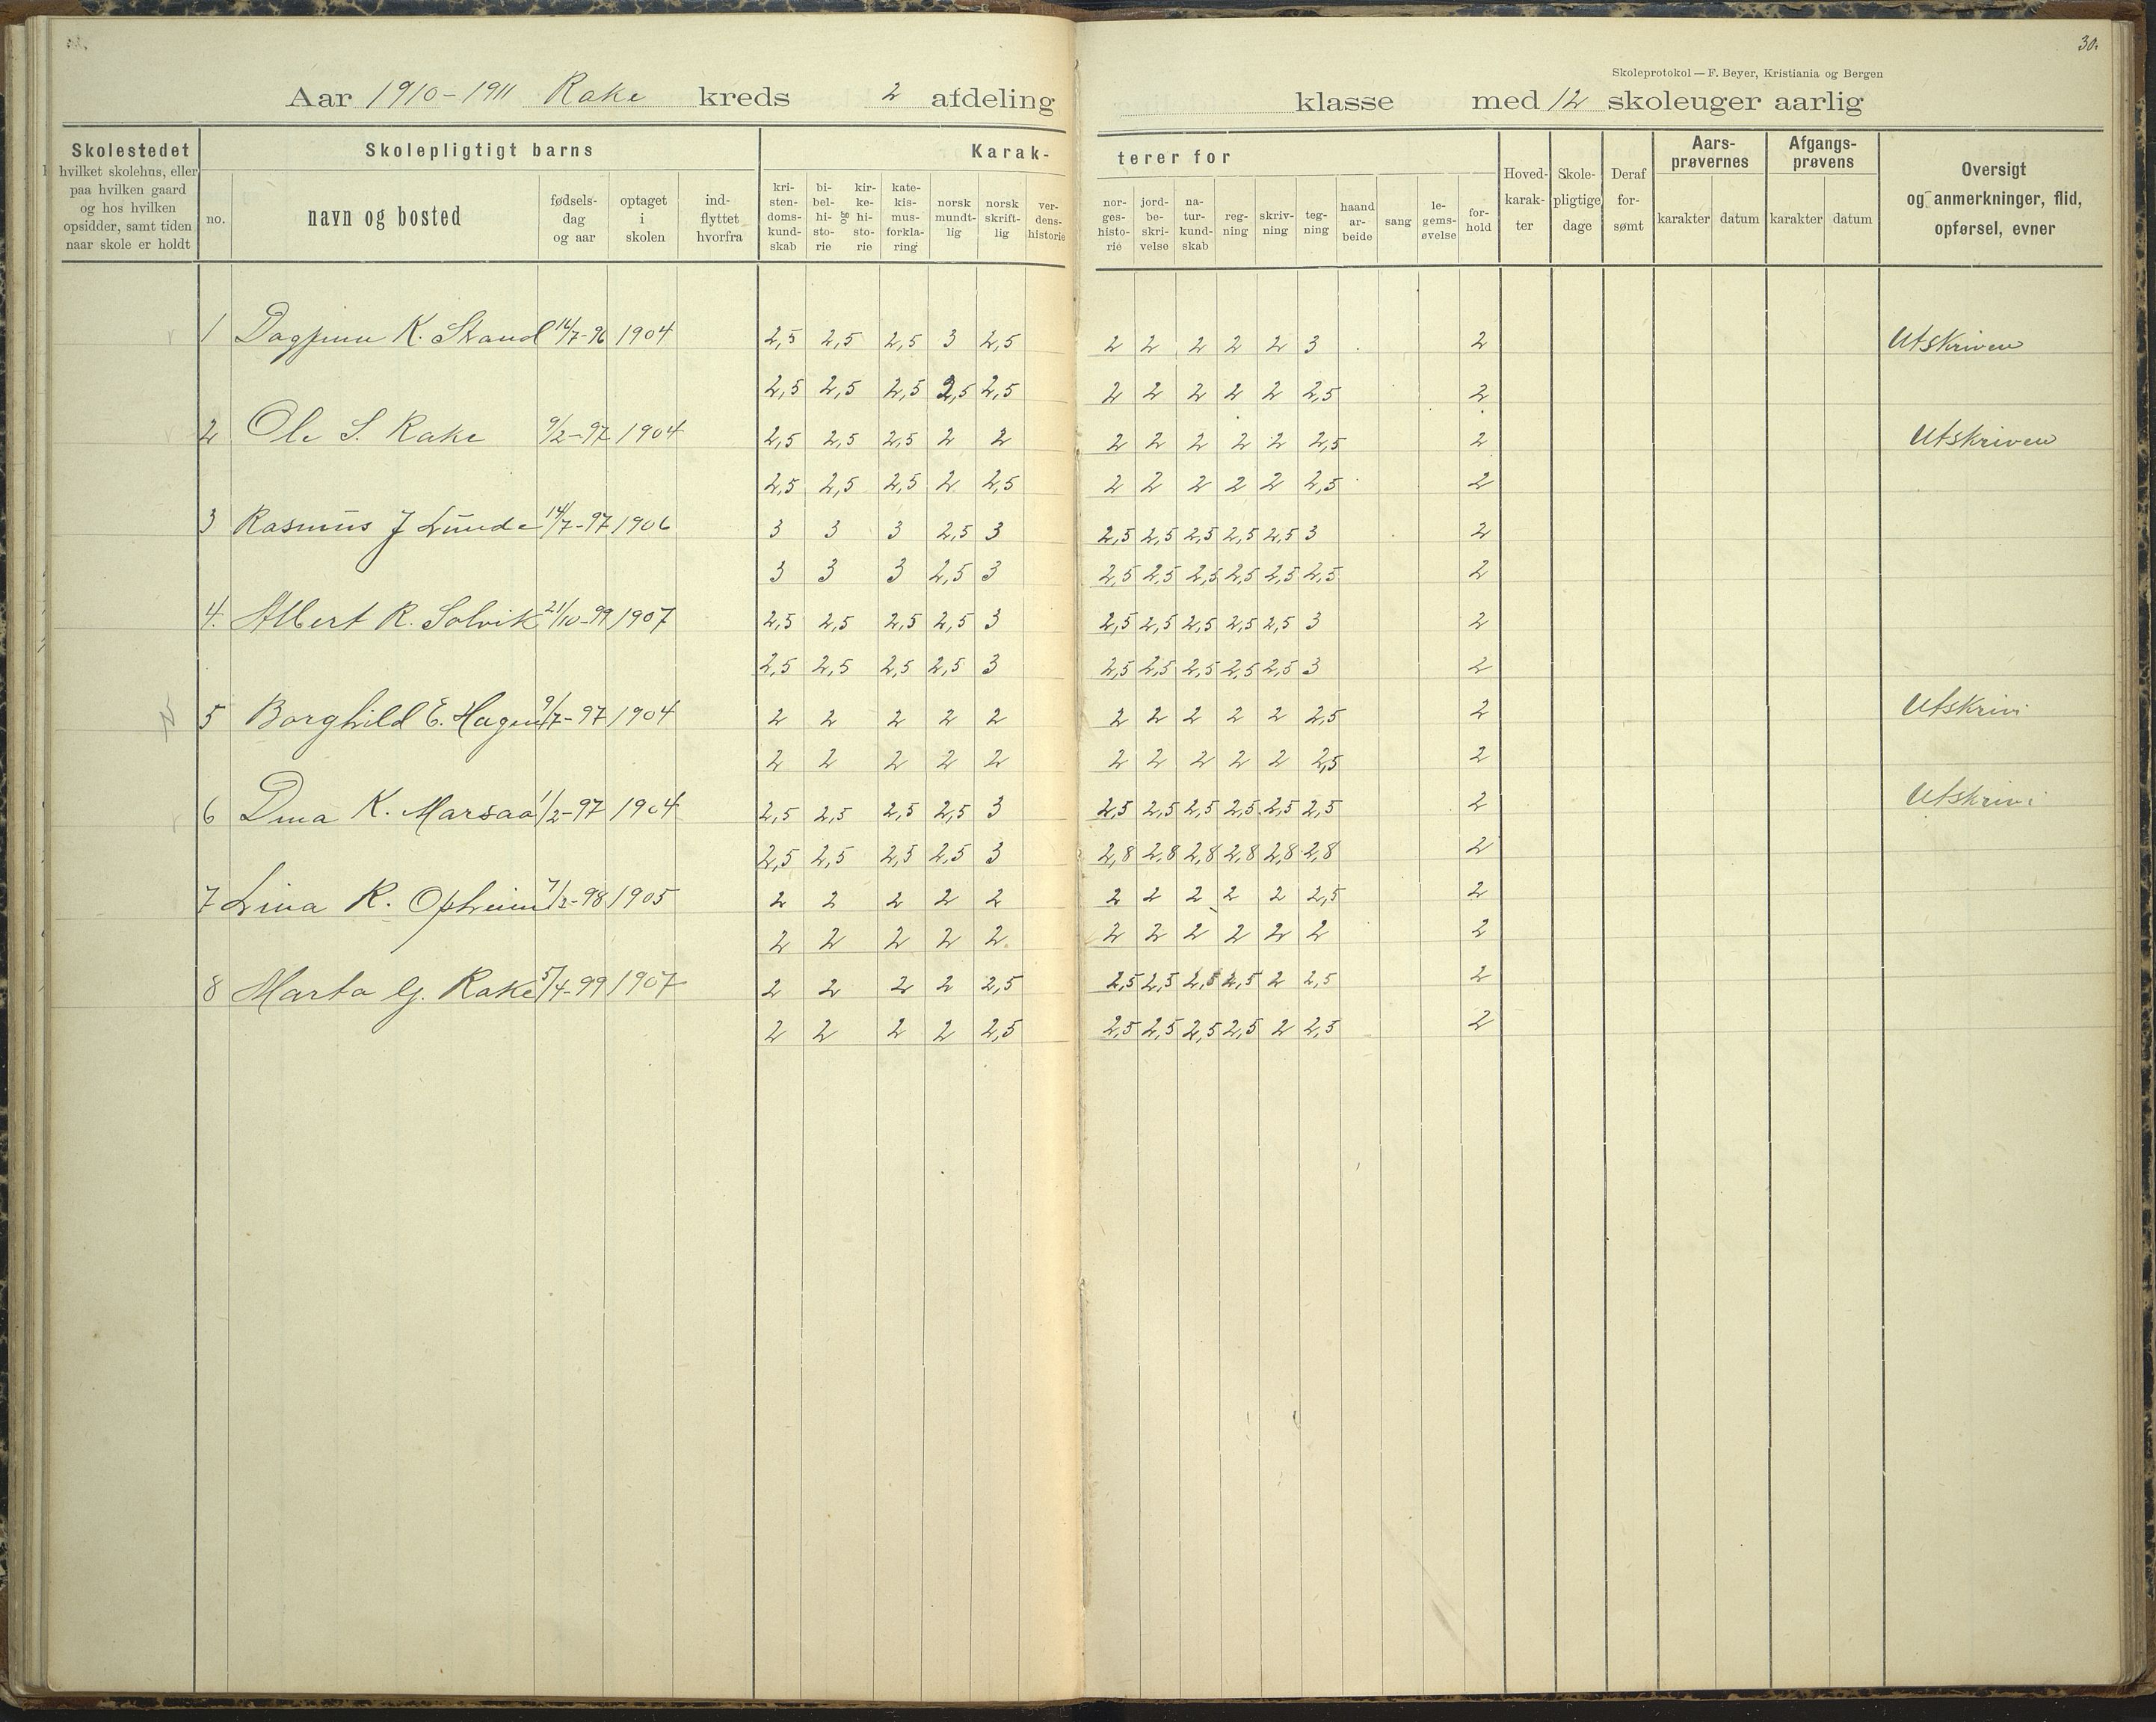 30.
Skoleprotokol — F. Beyer, Kristiania og Bergen
Aar 1910-1911 Rake kreds 2 afdeling klasse med 12 skoleuger aarlig
Skolestedet
hvilket skolehus, eller
paa hvilken gaard
og hos hvilken
opsidder, samt tiden
naar skole er holdt
Skolepligtigt barns
no.
navn og bosted
fødsels-
dag
og aar
optaget
i
skolen
ind-
flyttet
hvorfra
Karak-
terer for
kri-
sten-
doms-
kund-
skab
bi-
bel-
hi-
sto-
rie
og
kir-
ke-
hi-
sto-
rie
kate-
kis-
mus-
forkla-
ring
norsk
mundt-
lig
norsk
skrift-
lig
ver-
dens-
historie
nor-
ges-
histo-
rie
jord-
be-
skri-
velse
na-
tur-
kund-
skab
reg-
ning
skriv-
ning
teg-
ning
haand
ar-
beide
sang
le-
gems-
øvelse
for-
hold
Hoved-
karak-
ter
Skole-
pligtige
dage
Deraf
for-
sømt
Aars-
prøvernes
karakter datum
Afgangs-
prøvens
karakter datum
Oversigt
og anmerkninger, flid,
opførsel, evner
1 Dagfinn K. Strand 16/7-96 1904 2,5 2,5 2,5 3 2,5 2 2 2 2 2 3 2 Utskriven
2,5 2,5 2,5 2,5 2,5 2 2 2 2 2 2,5 2
2 Ole S. Rake 9/2-97 1904 2,5 2,5 2,5 2 2 2 2 2 2 2 2,5 2 Utskriven
2,5 2,5 2,5 2 2,5 2 2 2 2 2 2,5 2
3 Rasmus J Lunde 14/7-97 1906 3 3 3 2,5 3 2,5 2,5 2,5 2,5 2,5 3 2
3 3 3 2,5 3 2,5 2,5 2,5 2,5 2,5 2,5 2
4. Albert R. Solvik 21/10-99 1907 2,5 2,5 2,5 2,5 3 2,5 2,5 2,5 2,5 2,5 3 2
2,5 2,5 2,5 2,5 3 2,5 2,5 2,5 2,5 2,5 3 2
5 Borghild E. Hagen 9/7-97 1904 2 2 2 2 2 2 2 2 2 2 2,5 2 Utskrivi
2 2 2 2 2 2 2 2 2 2 2,5 2
6 Dina K. Marsaa 1/2-97 1904 2,5 2,5 2,5 2,5 3 2,5 2,5 2,5 2,5 2,5 2,5 2 Utskrivi
2,5 2,5 2,5 2,5 3 2,8 2,8 2,8 2,8 2,8 2,8 2
7 Lina R. Opheim 7/2-98 1905 2 2 2 2 2 2 2 2 2 2 2,5 2
2 2 2 2 2 2 2 2 2 2 2 2
8 Marta G. Rake 5/4-99 1907 2 2 2 2 2,5 2,5 2,5 2,5 2,5 2 2,5 2
2 2 2 2 2,5 2,5 2,5 2,5 2,5 2 2,5 2